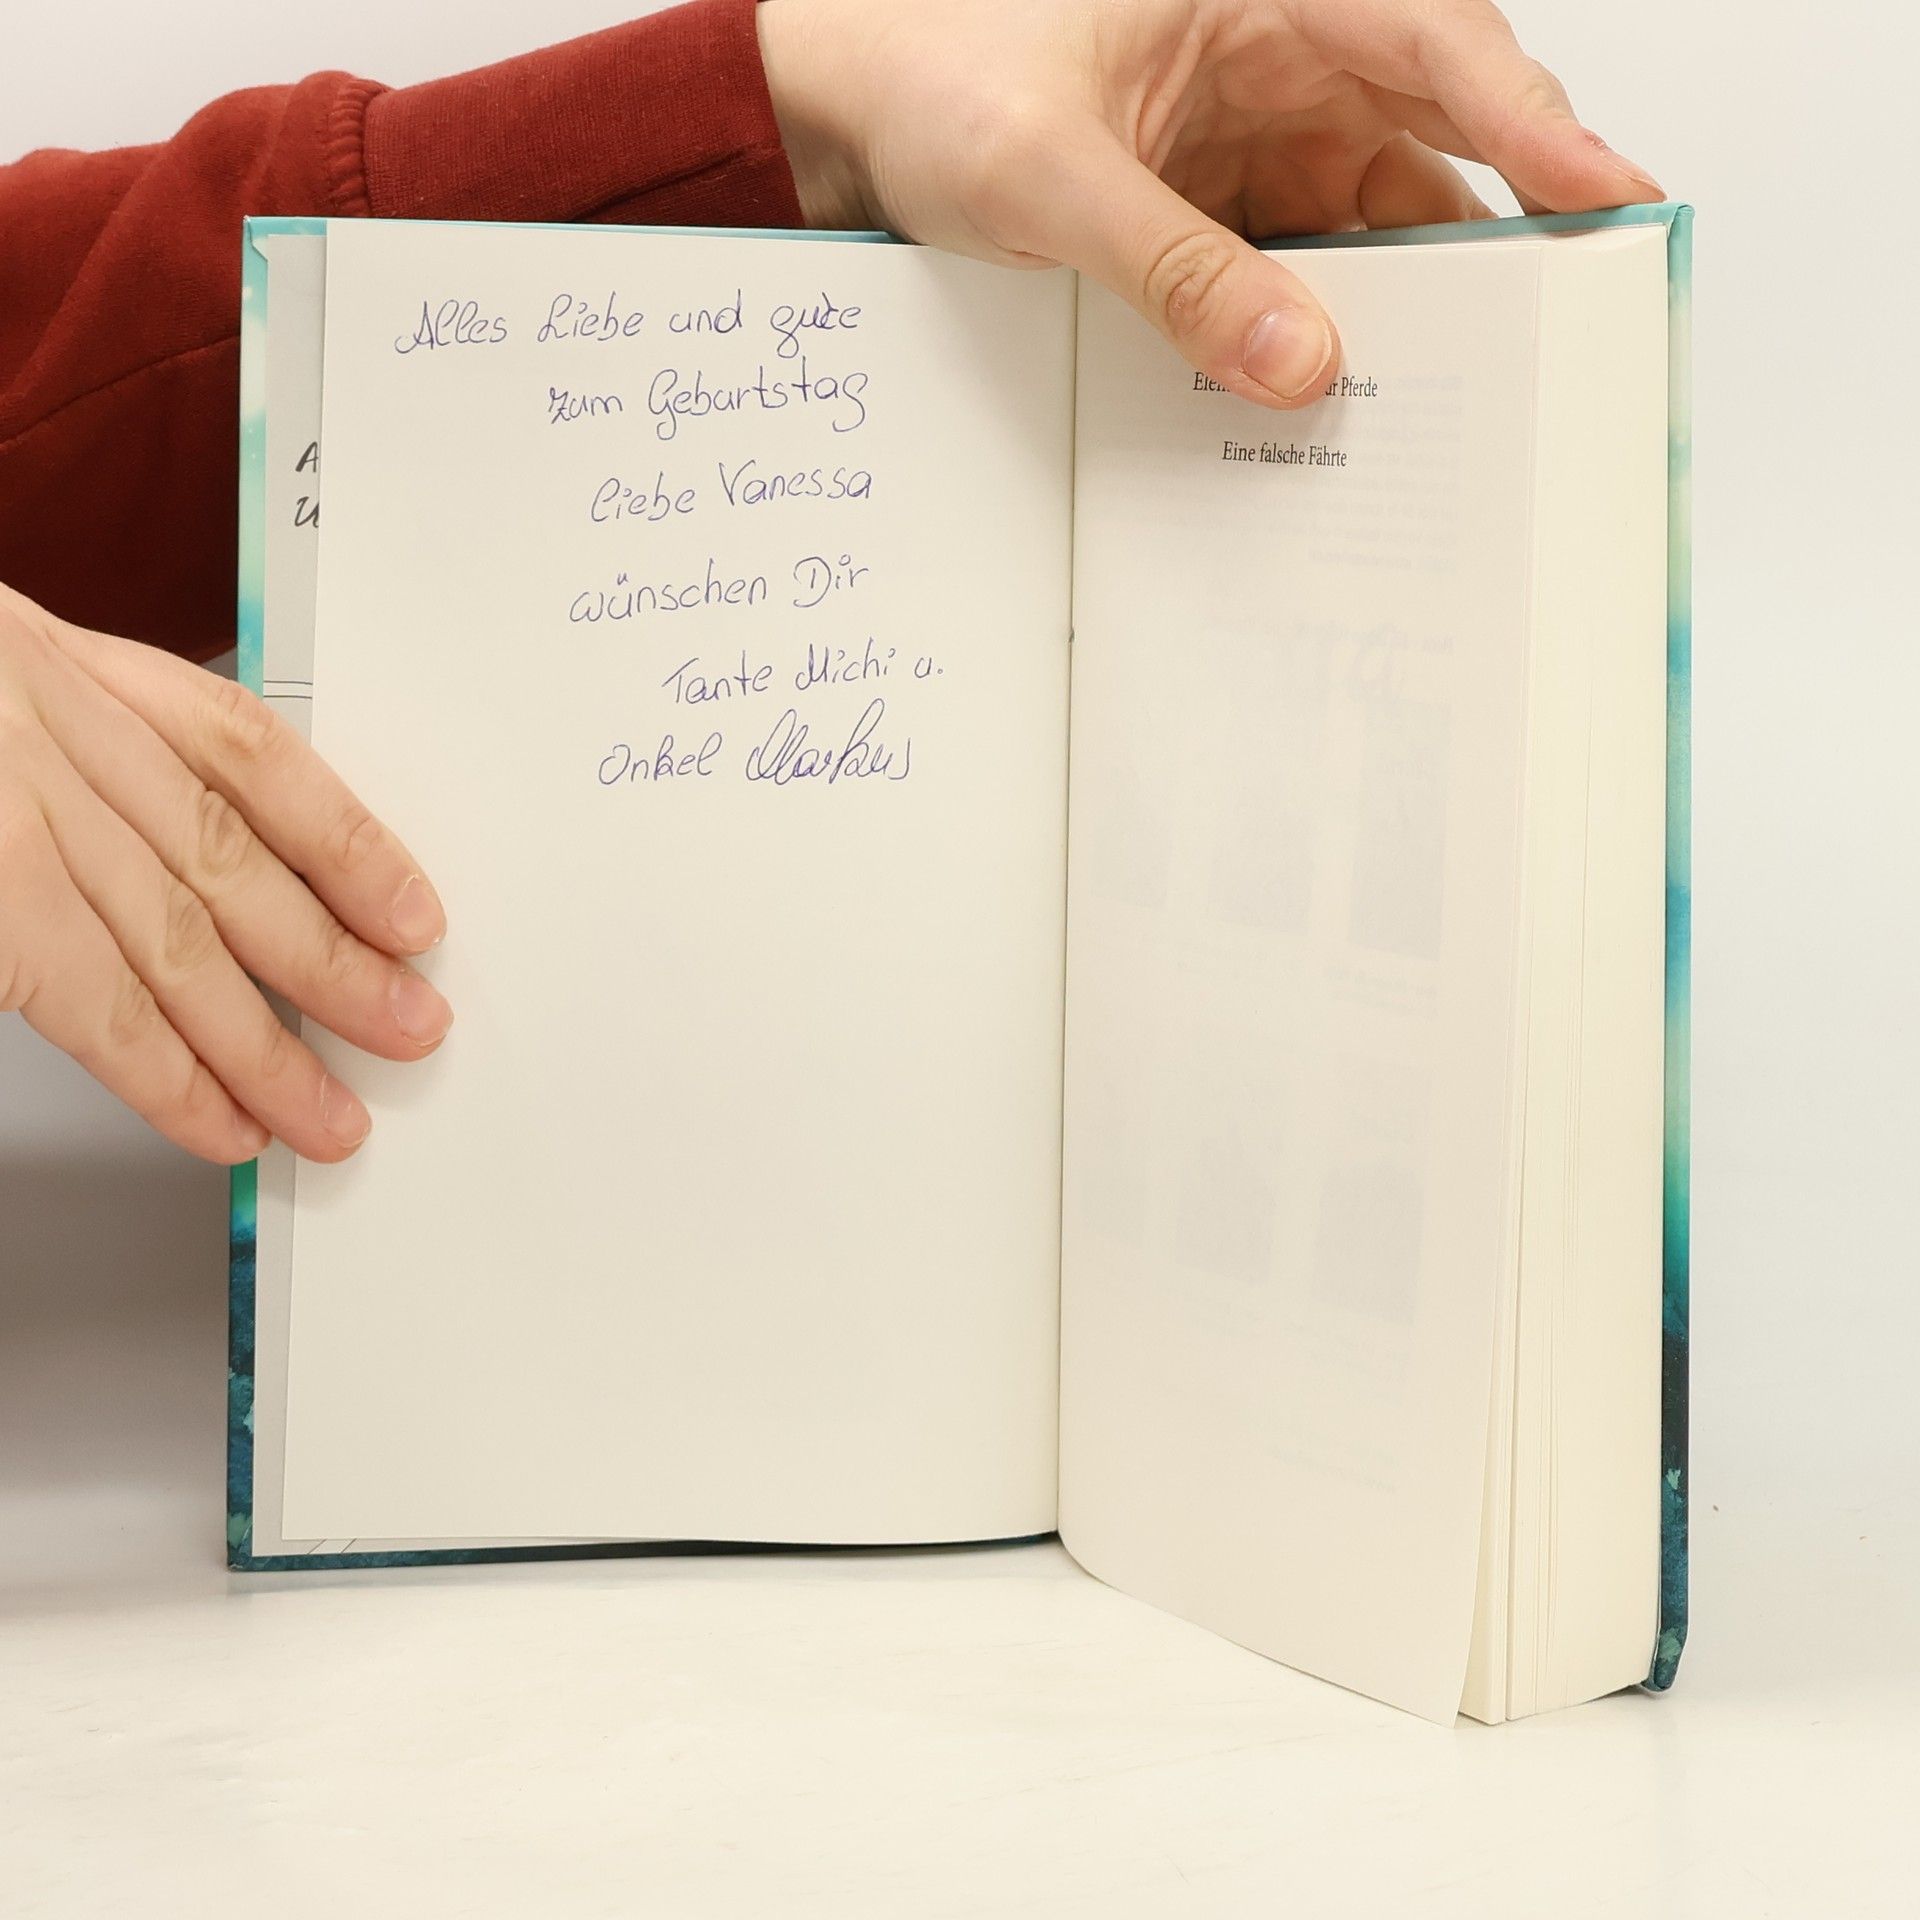 Alles Liebe und gute
zum Geburtstag
liebe Vanessa
wünschen Dir
Tante Michi u.
Onkel Markus
Pferde
Eine falsche Fährte